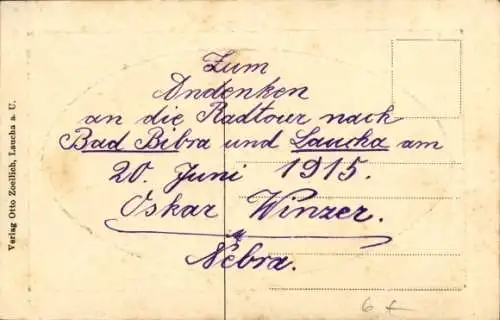 Zum
Andenken
an die Radtour nach
Bad Bibra und Laucha am
20. Juni 1915.
Oskar Winzer.
Nebra.
Verlag Otto Zoellich, Laucha a. U.